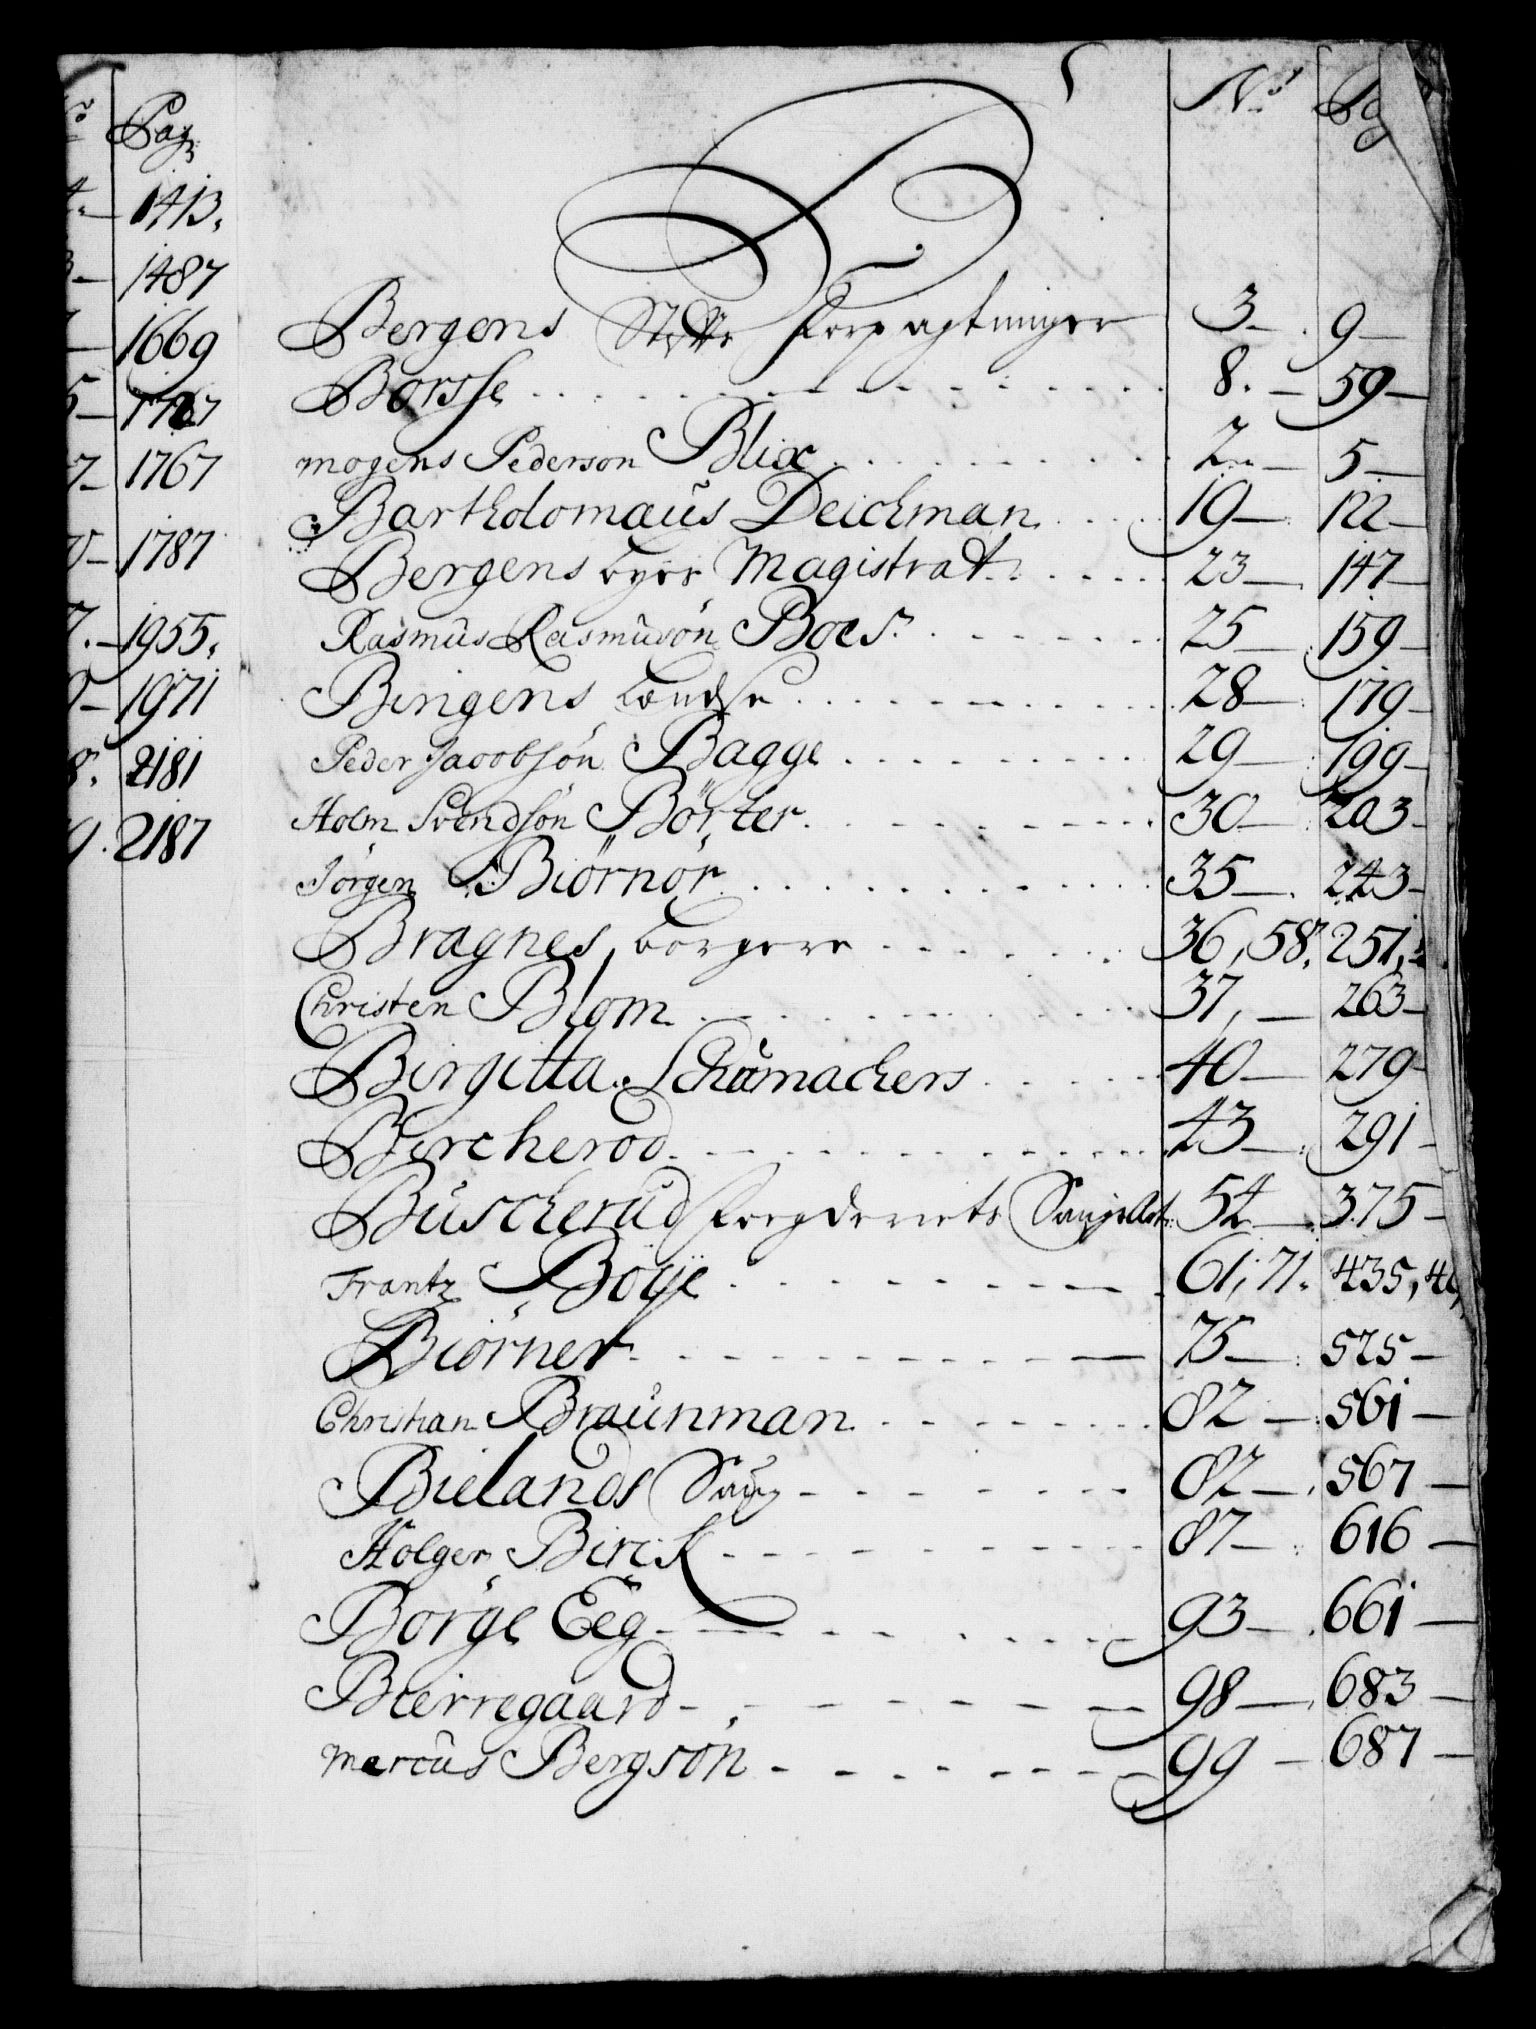 Pag
1413.
1487
1669
1767
1787
1955.
1971
2181
2187
B
No Pag
Bergens Stifts Forpagtninger 3 9
Borsse 8. 59
mogens Pederson Blix 2 5
Bartholomæus Deichman 19 122
Bergens byes Magistrat 23 147
Rasmus Rasmusøn Boes 25 159
Bingens Lændse 28 179
Peder Jacobsøn Bagge 29 199
Holm Svendsøn Börter 30 203
Jørgen Biørnør 35 243
Bragnes borgere 36, 58. 251,
Christen Blom 37, 263
Birgitta Schumachers 40 279
Bircherod 43 291
Buscherud fogderiets 54 375
Frantz Böÿe 61, 71. 435,
Biørner 75 525
Christian Braunman 82 561
Bielands Saug 82 567
Holger Birck 87 616
Borge Eeg 93 661
Bierregaard 98 683
Marcus Bergsøn 99 687